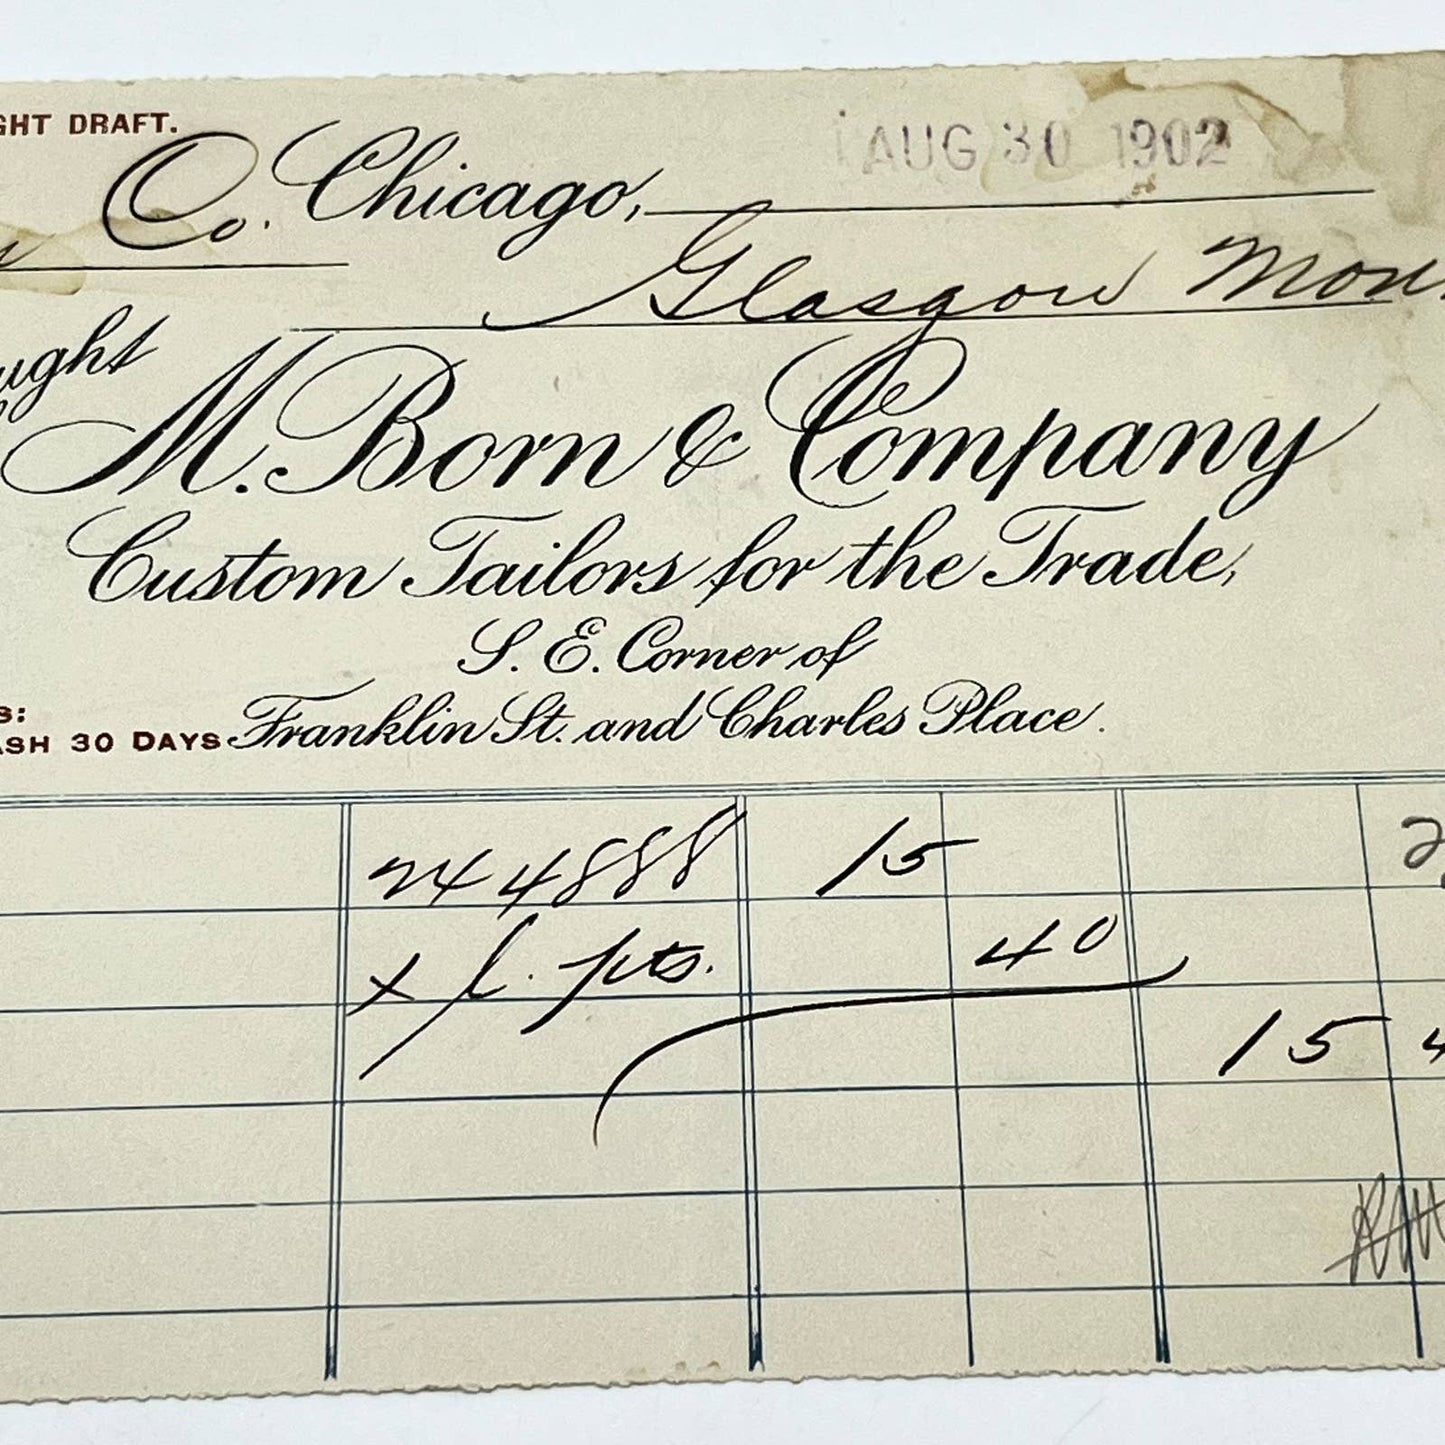 GHT DRAFT.
Co. Chicago, AUG 30 1902
Glasgow Mon
ught
M. Born & Company
Custom Tailors for the Trade,
S. E. Corner of
Franklin St. and Charles Place.
S:
ASH 30 DAYS
244888 15
x l. pts. 40
15 4